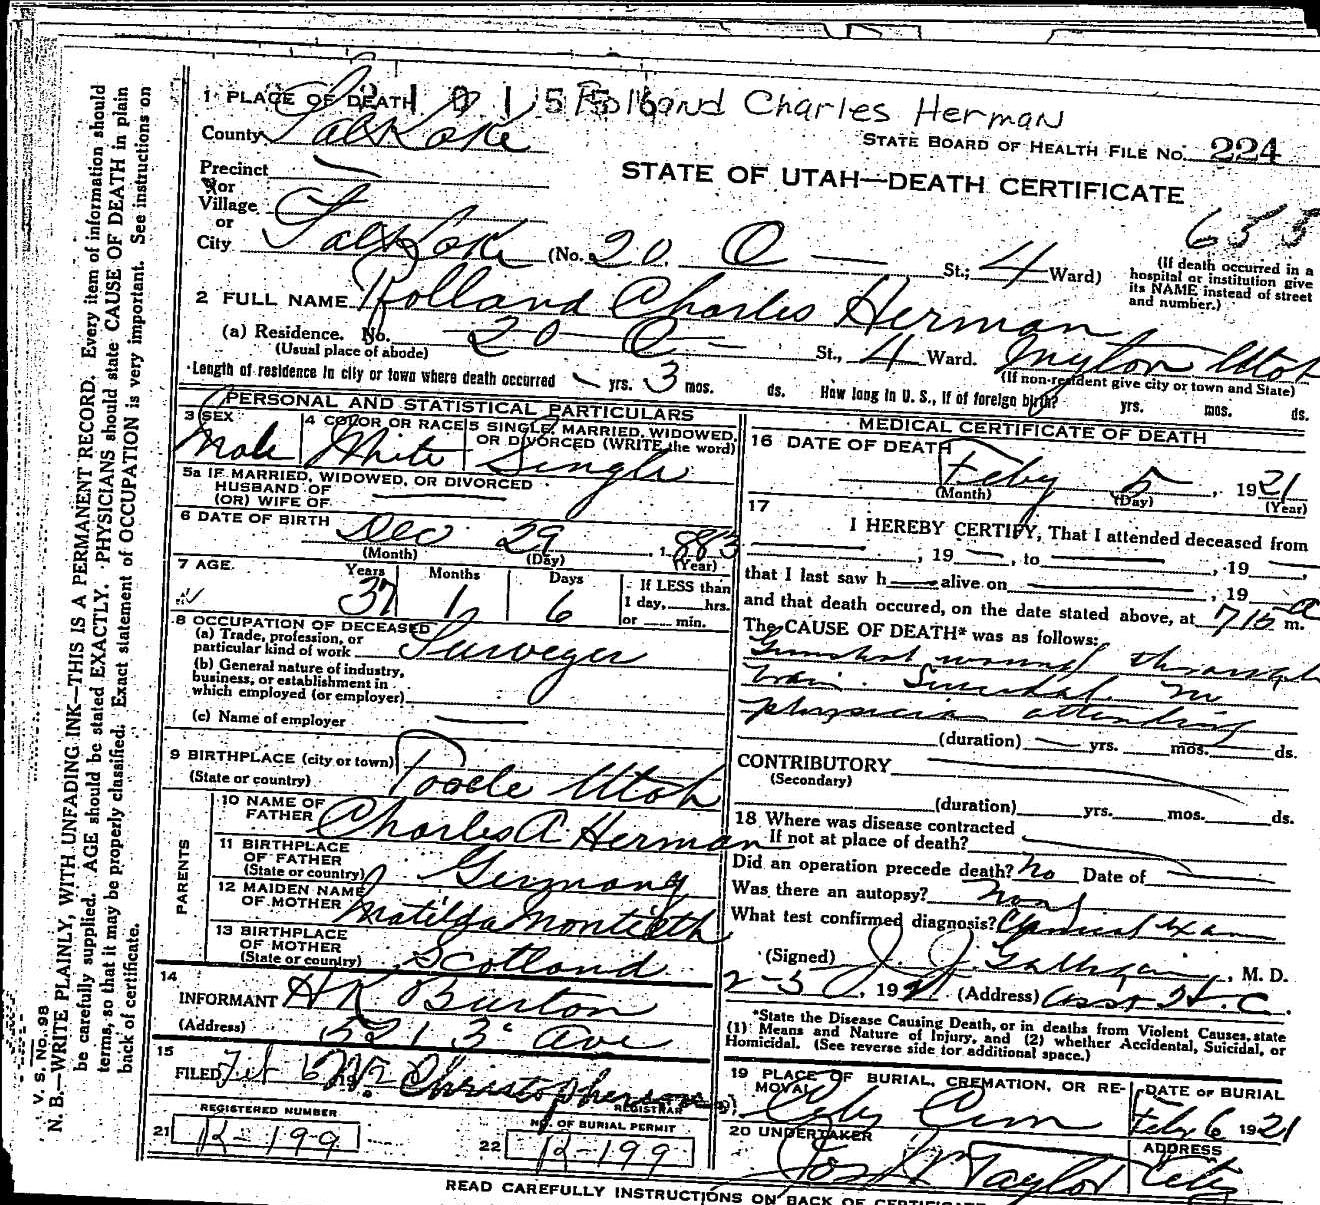 1 PLACE OF DEATH
2 1 0 1 5 5 6 Rolland Charles Herman
County Salt Lake
STATE BOARD OF HEALTH FILE NO. 224
Precinct —
or
Village
or
STATE OF UTAH—DEATH CERTIFICATE
653
City Salt Lake (No. 20 O — St.; 4 Ward)
(If death occurred in a
hospital or institution give
its NAME instead of street
and number.)
2 FULL NAME Rolland Charles Herman
(a) Residence. No. 20 O — St., 4 Ward. Myton Utah
(Usual place of abode)
(If non-resident give city or town and State)
Length of residence in city or town where death occurred — yrs. 3 mos. ds. How long in U. S., if of foreign birth? yrs. mos. ds.
PERSONAL AND STATISTICAL PARTICULARS
3 SEX
Male
4 COLOR OR RACE
White
5 SINGLE, MARRIED, WIDOWED,
OR DIVORCED (WRITE the word)
Single
5a IF MARRIED, WIDOWED, OR DIVORCED
HUSBAND OF
(OR) WIFE OF
6 DATE OF BIRTH
Dec 29, 1883
(Month) (Day) (Year)
7 AGE
Years Months Days
37 1 6
If LESS than
1 day, hrs.
or min.
8 OCCUPATION OF DECEASED
(a) Trade, profession, or
particular kind of work Surveyer
(b) General nature of industry,
business, or establishment in
which employed (or employer)
(c) Name of employer —
9 BIRTHPLACE (city or town)
(State or country) Tooele Utah
PARENTS
10 NAME OF
FATHER Charles A. Herman
11 BIRTHPLACE
OF FATHER
(State or country) Germany
12 MAIDEN NAME
OF MOTHER Matilda Montieth
13 BIRTHPLACE
OF MOTHER
(State or country) Scotland
14
INFORMANT H K Burton
(Address) 521 3" Ave
15
FILED Feb 6 192 Christopherson
REGISTRAR
REGISTERED NUMBER
21 K-199
NO. OF BURIAL PERMIT
22 K-199
MEDICAL CERTIFICATE OF DEATH
16 DATE OF DEATH
Feby 5, 1921
(Month) (Day) (Year)
17
I HEREBY CERTIFY, That I attended deceased from
—, 19 —, to —, 19 —,
that I last saw h — alive on —, 19 —
and that death occured, on the date stated above, at 715 a m.
The CAUSE OF DEATH* was as follows:
Gunshot wound through
brain. Suicidal. No
physician attending
(duration) — yrs. mos. ds.
CONTRIBUTORY
(Secondary)
(duration) yrs. mos. ds.
18 Where was disease contracted
If not at place of death?
Did an operation precede death? No Date of —
Was there an autopsy?
What test confirmed diagnosis? Exam
(Signed) J. J. Galligan, M. D.
2-5, 1921 (Address) Asst H. C.
*State the Disease Causing Death, or in deaths from Violent Causes, state
(1) Means and Nature of Injury, and (2) whether Accidental, Suicidal, or
Homicidal. (See reverse side for additional space.)
19 PLACE OF BURIAL, CREMATION, OR RE-
MOVAL
City Cem
DATE OF BURIAL
Feby 6 1921
20 UNDERTAKER
Jos Wm Taylor
ADDRESS
City
READ CAREFULLY INSTRUCTIONS ON BACK OF
V. S. No. 98
N. B.—WRITE PLAINLY, WITH UNFADING INK—THIS IS A PERMANENT RECORD. Every item of information should
be carefully supplied. AGE should be stated EXACTLY. PHYSICIANS should state CAUSE OF DEATH in plain
terms, so that it may be properly classified. Exact statement of OCCUPATION is very important. See instructions on
back of certificate.